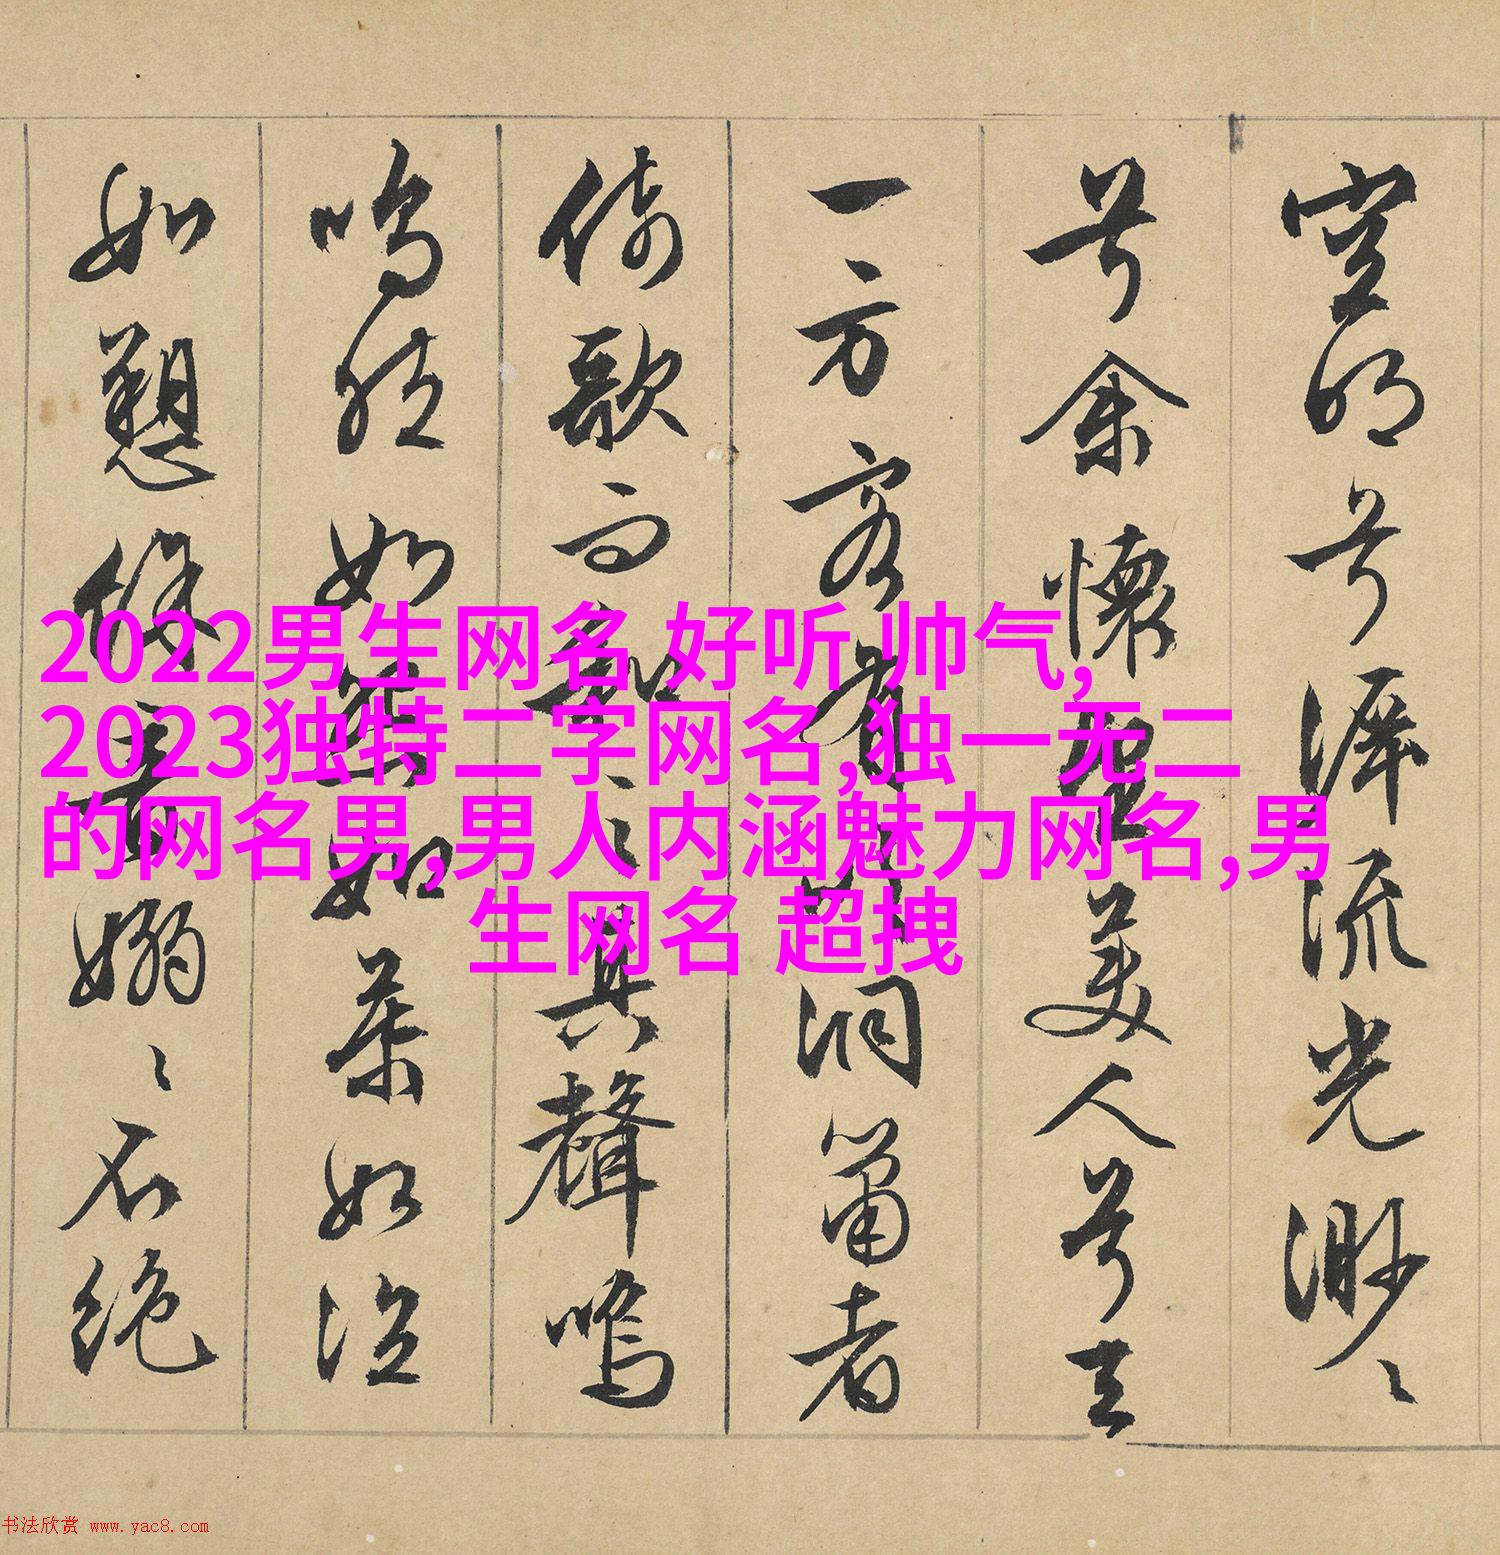 空明兮泝流光渺〻
兮余懷望美人兮天
一方客有吹洞簫者
倚歌而和之其聲嗚
嗚然如怨如慕如泣
如愬餘音嫋〻不絕
2022男生网名 好听 帅气,
2023独特二字网名,独一无二
的网名男,男人内涵魅力网名,男
生网名 超拽
书法欣赏 www.yac8.com